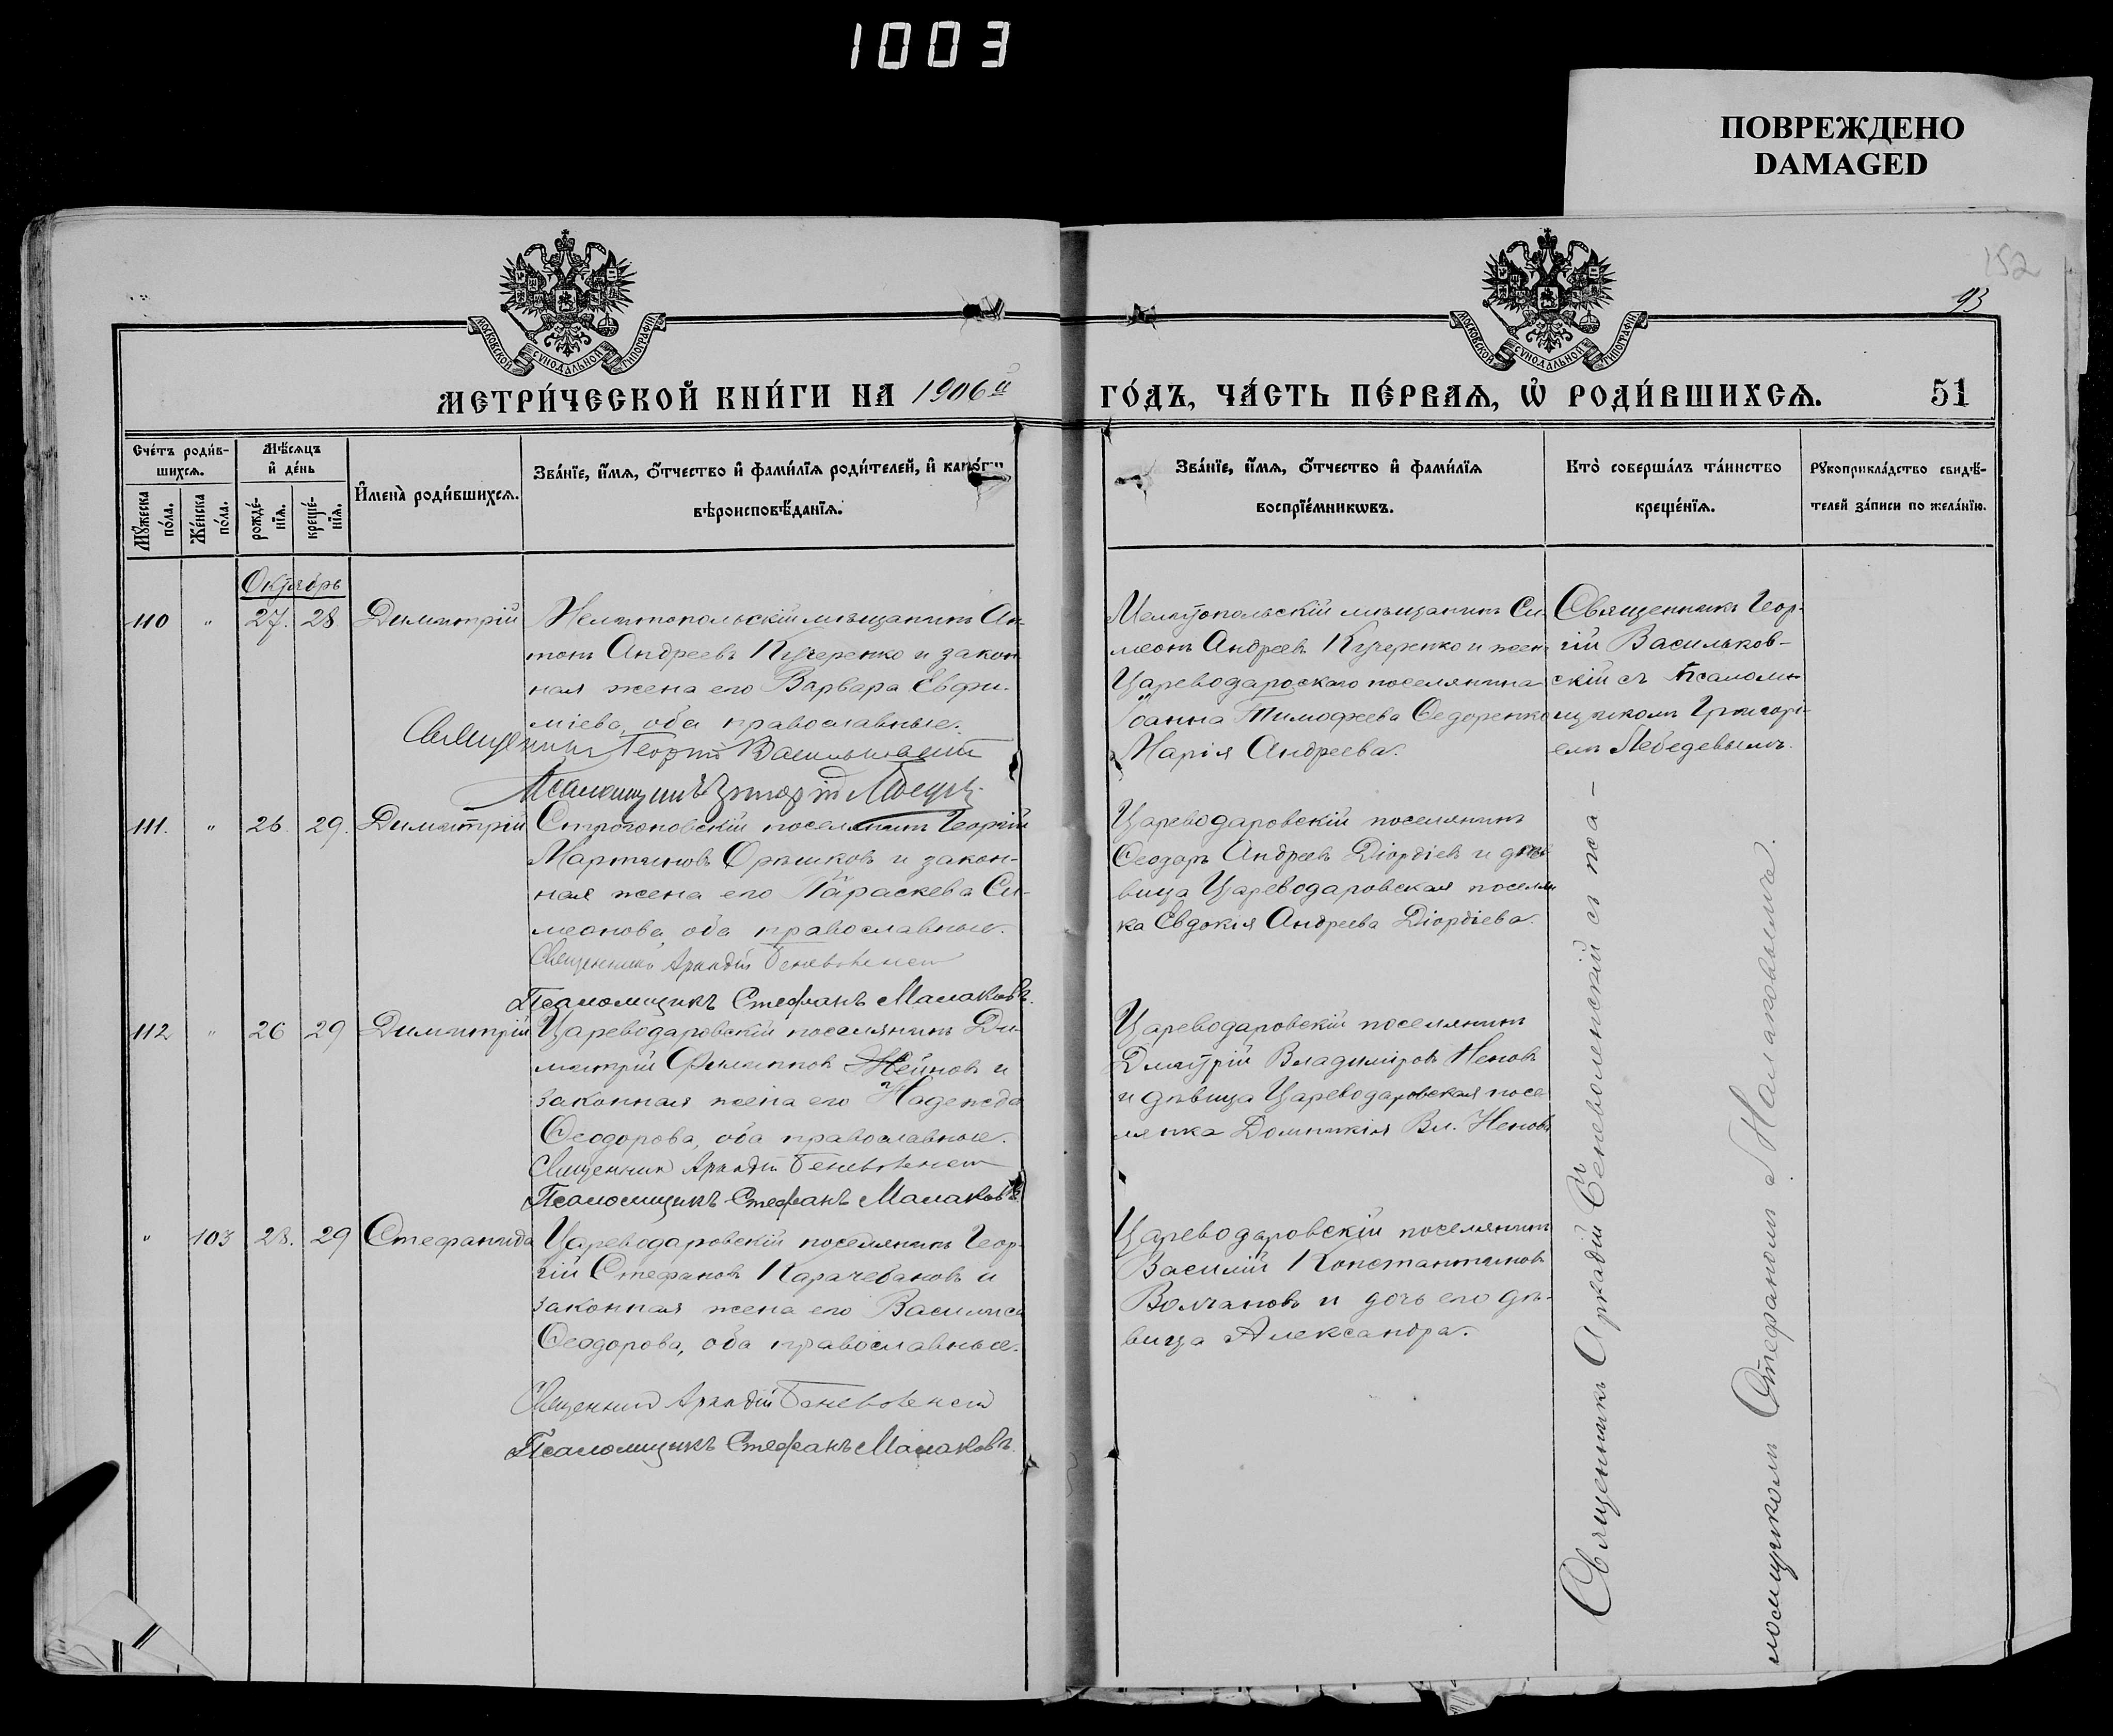 1003
ПОВРЕЖДЕНО
DAMAGED
152
93
МОСКОВСКОЙ СУНОДАЛЬНОЙ ТИПОГРАФІИ
МОСКОВСКОЙ СУНОДАЛЬНОЙ ТИПОГРАФІИ
МЕТРИ́ЧЕСКОЙ КНИ́ГИ НА 1906й ГО́ДЪ, ЧА́СТЬ ПЕ́РВАѦ, Ѡ҆ РОДИ́ВШИХСѦ. 51
Сче́тъ роди́в-
шихсѧ.
Мꙋ́жеска
по́ла.
Же́нска
по́ла.
Мѣ́сѧцъ
и҆ де́нь
рожде́-
нїѧ.
креще́-
нїѧ.
И҆мена̀ роди́вшихсѧ.
Зва́нїе, и҆́мѧ, ѻ҆́тчество и҆ фами́лїѧ роди́телей, и҆ како́гѡ
вѣроисповѣ́данїѧ.
Зва́нїе, и҆́мѧ, ѻ҆́тчество и҆ фами́лїѧ
воспрїе́мникѡвъ.
Кто̀ соверша́лъ та́инство
креще́нїѧ.
Рꙋкоприкла́дство свидѣ́-
телей за́писи по жела́нїю.
Октябрь
110 " 27. 28. Димитрій
Мелитопольскій мѣщанинъ Ан-
тонъ Андреевъ Кучеренко и закон-
ная жена его Варвара Евфи-
міева, оба православные.
Священникъ Георгій Васильковскій
Псаломщикъ Григорій Лебедевъ
Мелитопольскій мѣщанинъ Си-
меонъ Андреевъ Кучеренко и жена
Цареводаровскаго поселянина
Іоанна Тимофеева Федоренко
Марія Андреева.
Священникъ Геор-
гій Васильков-
скій съ псалом-
щикомъ Григорі-
емъ Лебедевымъ.
111. " 26. 29. Димитрій
Строгоновскій поселянинъ Георгій
Мартиновъ Орѣшковъ и закон-
ная жена его Параскева Си-
меонова, оба православные.
Священникъ Аркадій Беневоленскій
Псаломщикъ Стефанъ Малаковъ.
Цареводаровскій поселянинъ
Феодоръ Андреевъ Діордіевъ и дѣ-
вица Цареводаровская поселян-
ка Евдокія Андреева Діордіева.
112 " 26 29 Димитрій
Цареводаровскій поселянинъ Ди-
митрій Филипповъ Нейновъ и
законная жена его Надежда
Феодорова, оба православные.
Священникъ Аркадій Беневоленскій
Псаломщикъ Стефанъ Малаковъ.
Цареводаровскій поселянинъ
Дмитрій Владиміровъ Неновъ
и дѣвица Цареводаровская посе-
лянка Домникія Вл. Ненова
" 103 28. 29 Стефанида
Цареводаровскій поселянинъ Геор-
гій Стефановъ Карачебановъ и
законная жена его Василиса
Феодорова, оба православные.
Священникъ Аркадій Беневоленскій
Псаломщикъ Стефанъ Малаковъ.
Цареводаровскій поселянинъ
Василій Константиновъ
Волчановъ и дочь его дѣ-
вица Александра.
Священникъ Аркадій Беневоленскій съ пса-
ломщикомъ Стефаномъ Малаковымъ.